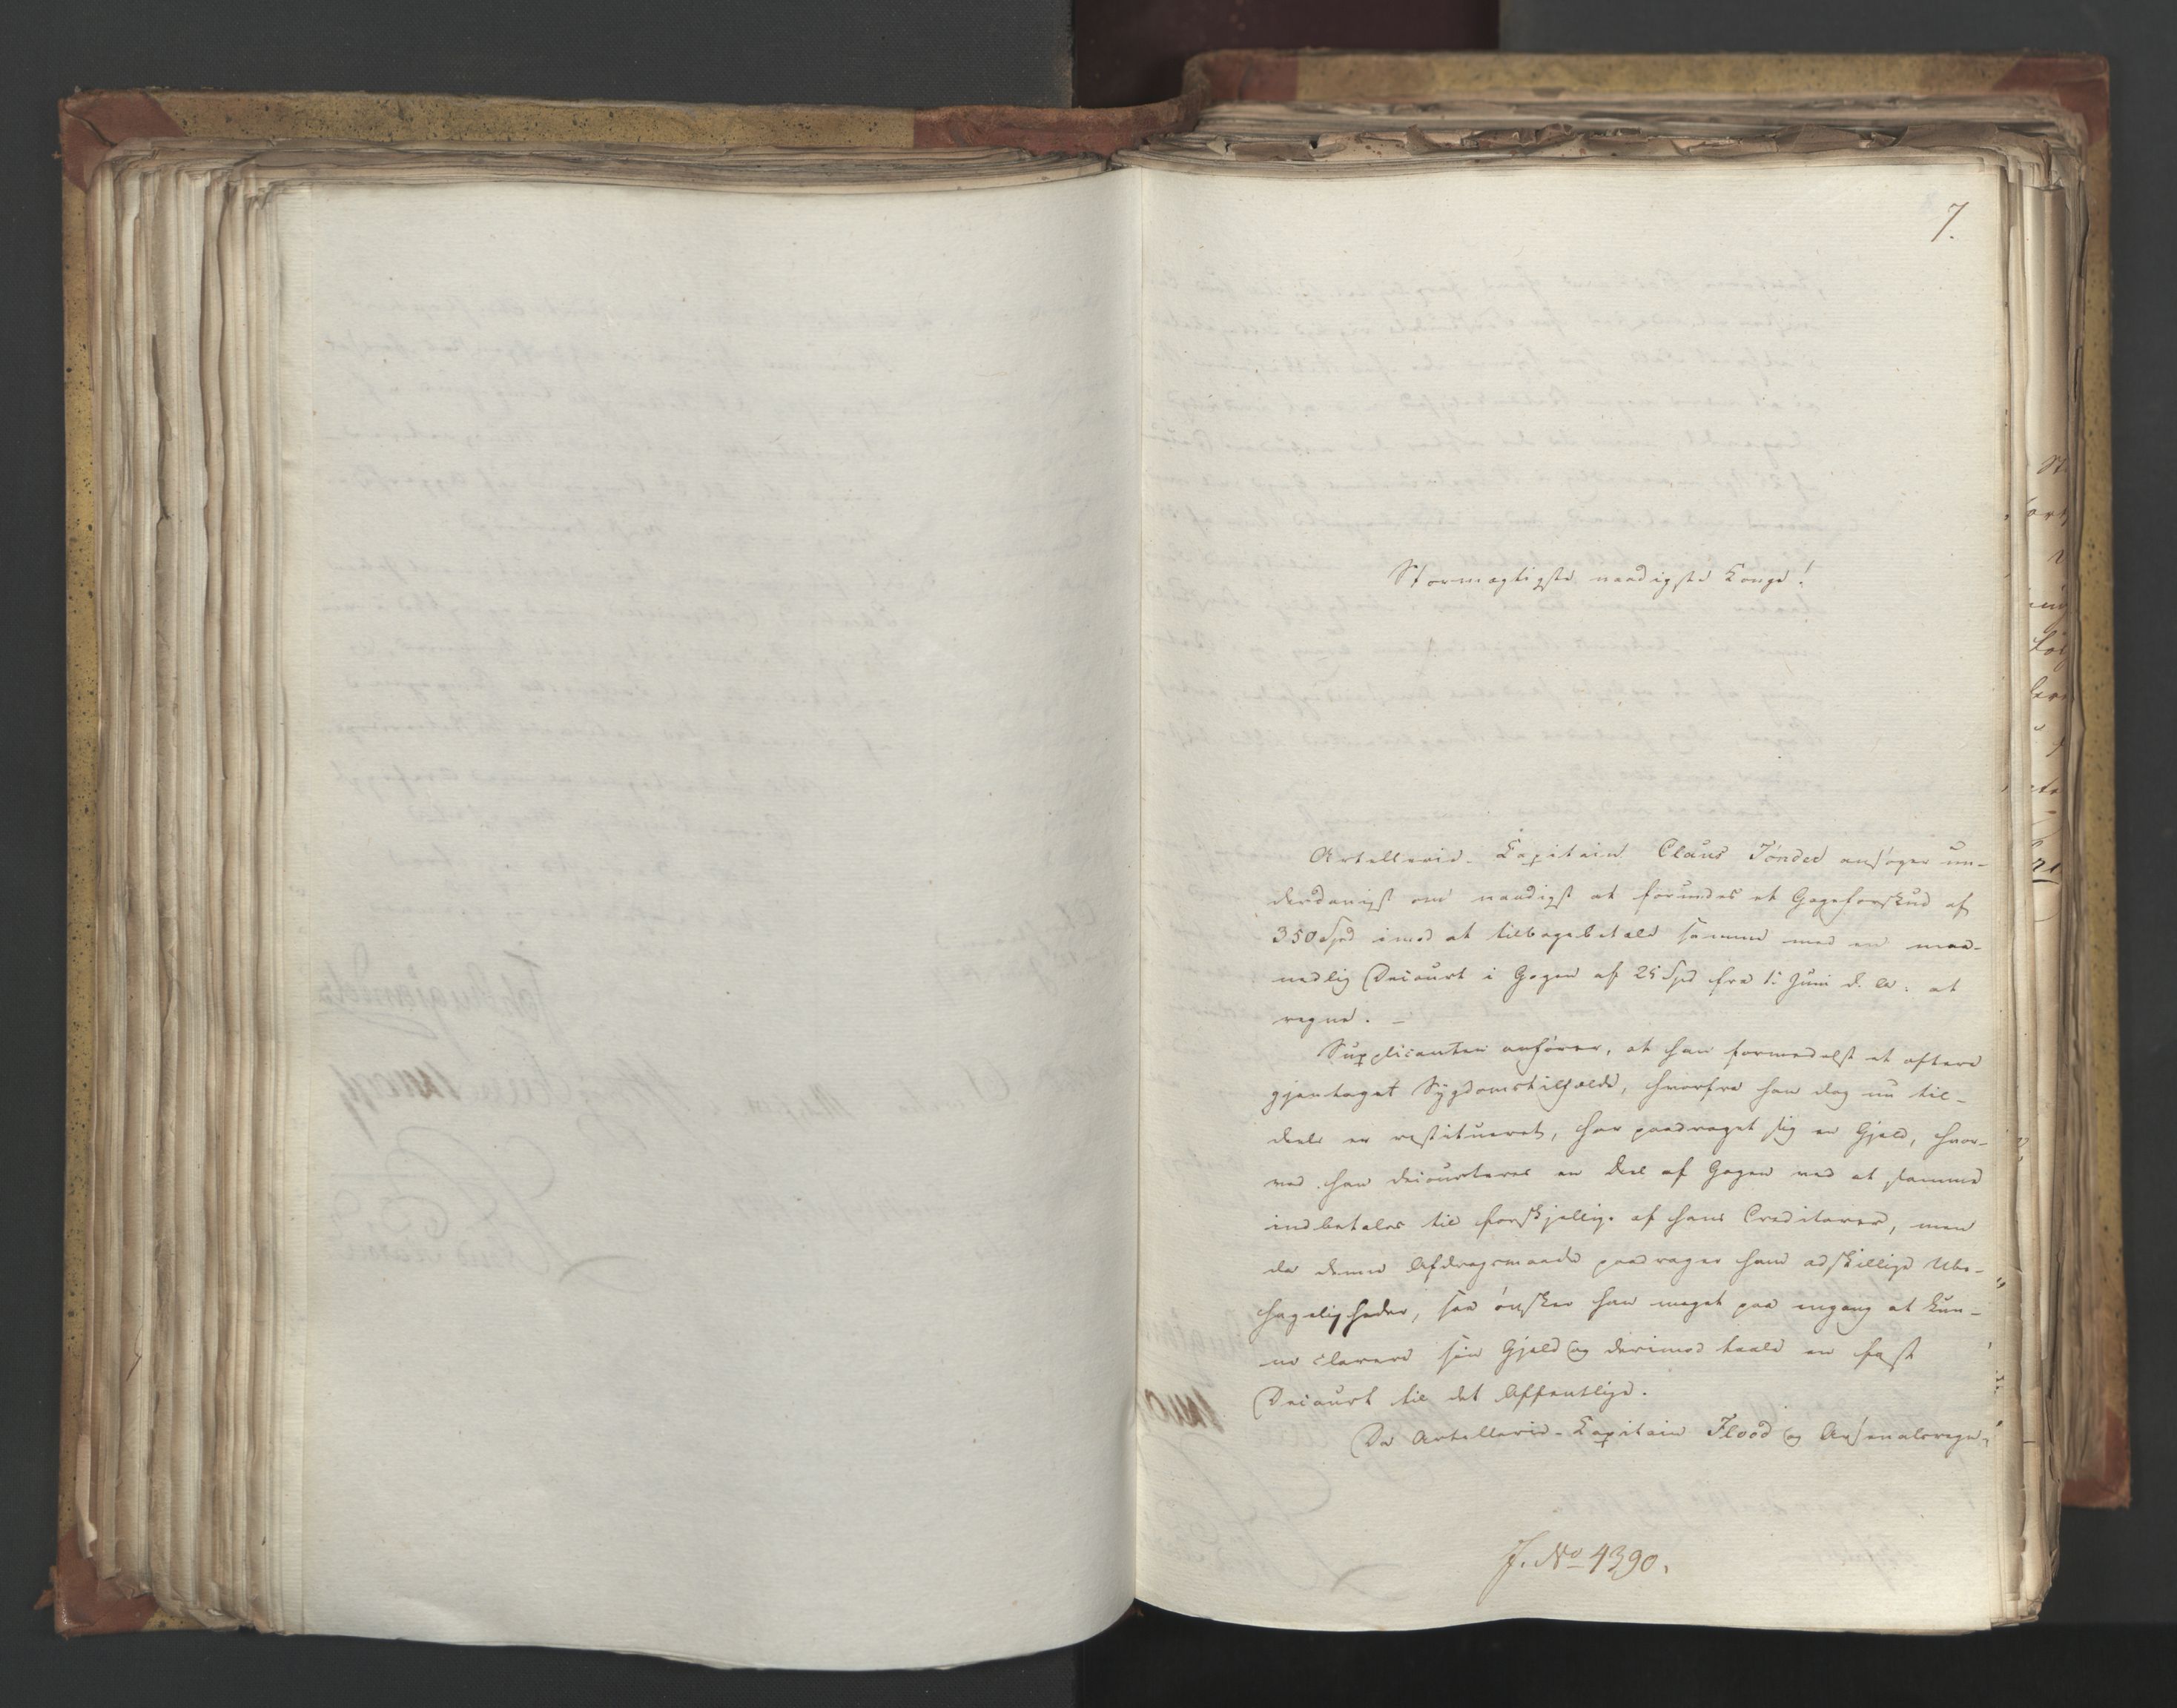 7.
Stormægtigste naadigste Konge!
Artellerie-Kapitain Claus Tønder ansøger un-
derdanigst om naadigst at forundes et Gageforskud af
350 Spd imod at tilbagebetale samme med en maa-
nedlig Decourt i Gagen af 25 Spd fra 1. Juni d. A. at
regne. -
Supplicanten anfører, at han formedelst et oftere
gjentaget Sygdomstilfælde, hvorfra han dog nu til-
deels er restitueret, har paadraget sig en Gjeld, hvor-
ved han decourteres en Deel af Gagen ved at samme
indbetales til forskjellige af hans Creditorer, men
da denne Afdragsmaade paadrager ham adskillige Ube-
hageligheder, saa ønsker han meget paa engang at kun-
ne clarere sin Gjeld og derimod taale en fast
Decourt til det Offentlige.
Da Artellerie-Kapitain Flood og Arsenalsregn-
J. No 4390.